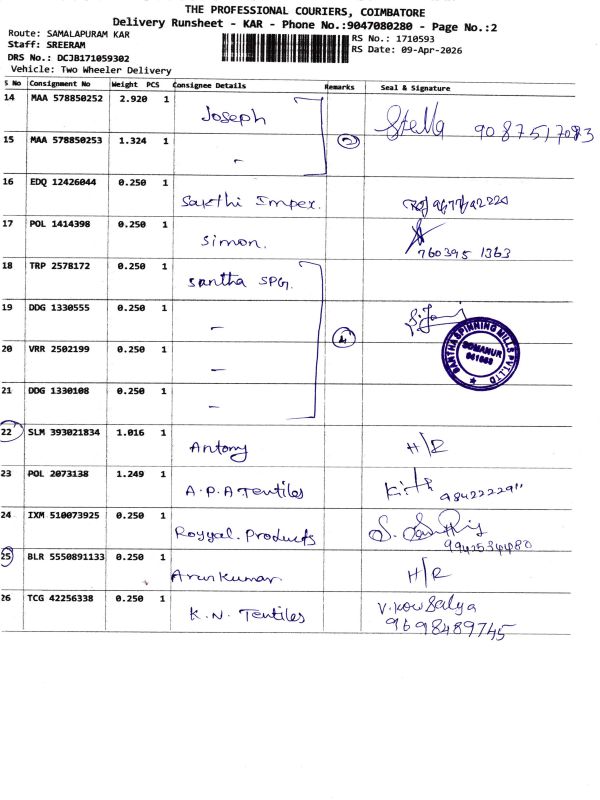 THE PROFESSIONAL COURIERS, COIMBATORE
Delivery Runsheet - KAR - Phone No.:9047080280 - Page No.:2
Route: SAMALAPURAM KAR
RS No.: 1710593
Staff: SREERAM
RS Date: 09-Apr-2026
DRS No.: DCJB171059302
Vehicle: Two Wheeler Delivery
S No Consignment No Weight PCS Consignee Details Remarks Seal & Signature
14 MAA 578850252 2.920 1 Joseph Stella 9087517083
15 MAA 578850253 1.324 1 - 2
16 EDQ 12426044 0.250 1 Sakthi Impex.
17 POL 1414398 0.250 1 Simon. 760395 1363
18 TRP 2578172 0.250 1 Santha SPG.
19 DDG 1330555 0.250 1 -
20 VRR 2502199 0.250 1 - 4
SANTHA SPINNING MILLS PVT.LTD
SOMANUR
21 DDG 1330108 0.250 1 -
22 SLM 393021834 1.016 1 Antony H/R
23 POL 2073138 1.249 1 A.P.A Textiles
24 IXM 510073925 0.250 1 Royyal. Products 9942534480
25 BLR 5550891133 0.250 1 Arunkumar. H/R
26 TCG 42256338 0.250 1 K.N. Textiles V. Kowsalya
9698489745